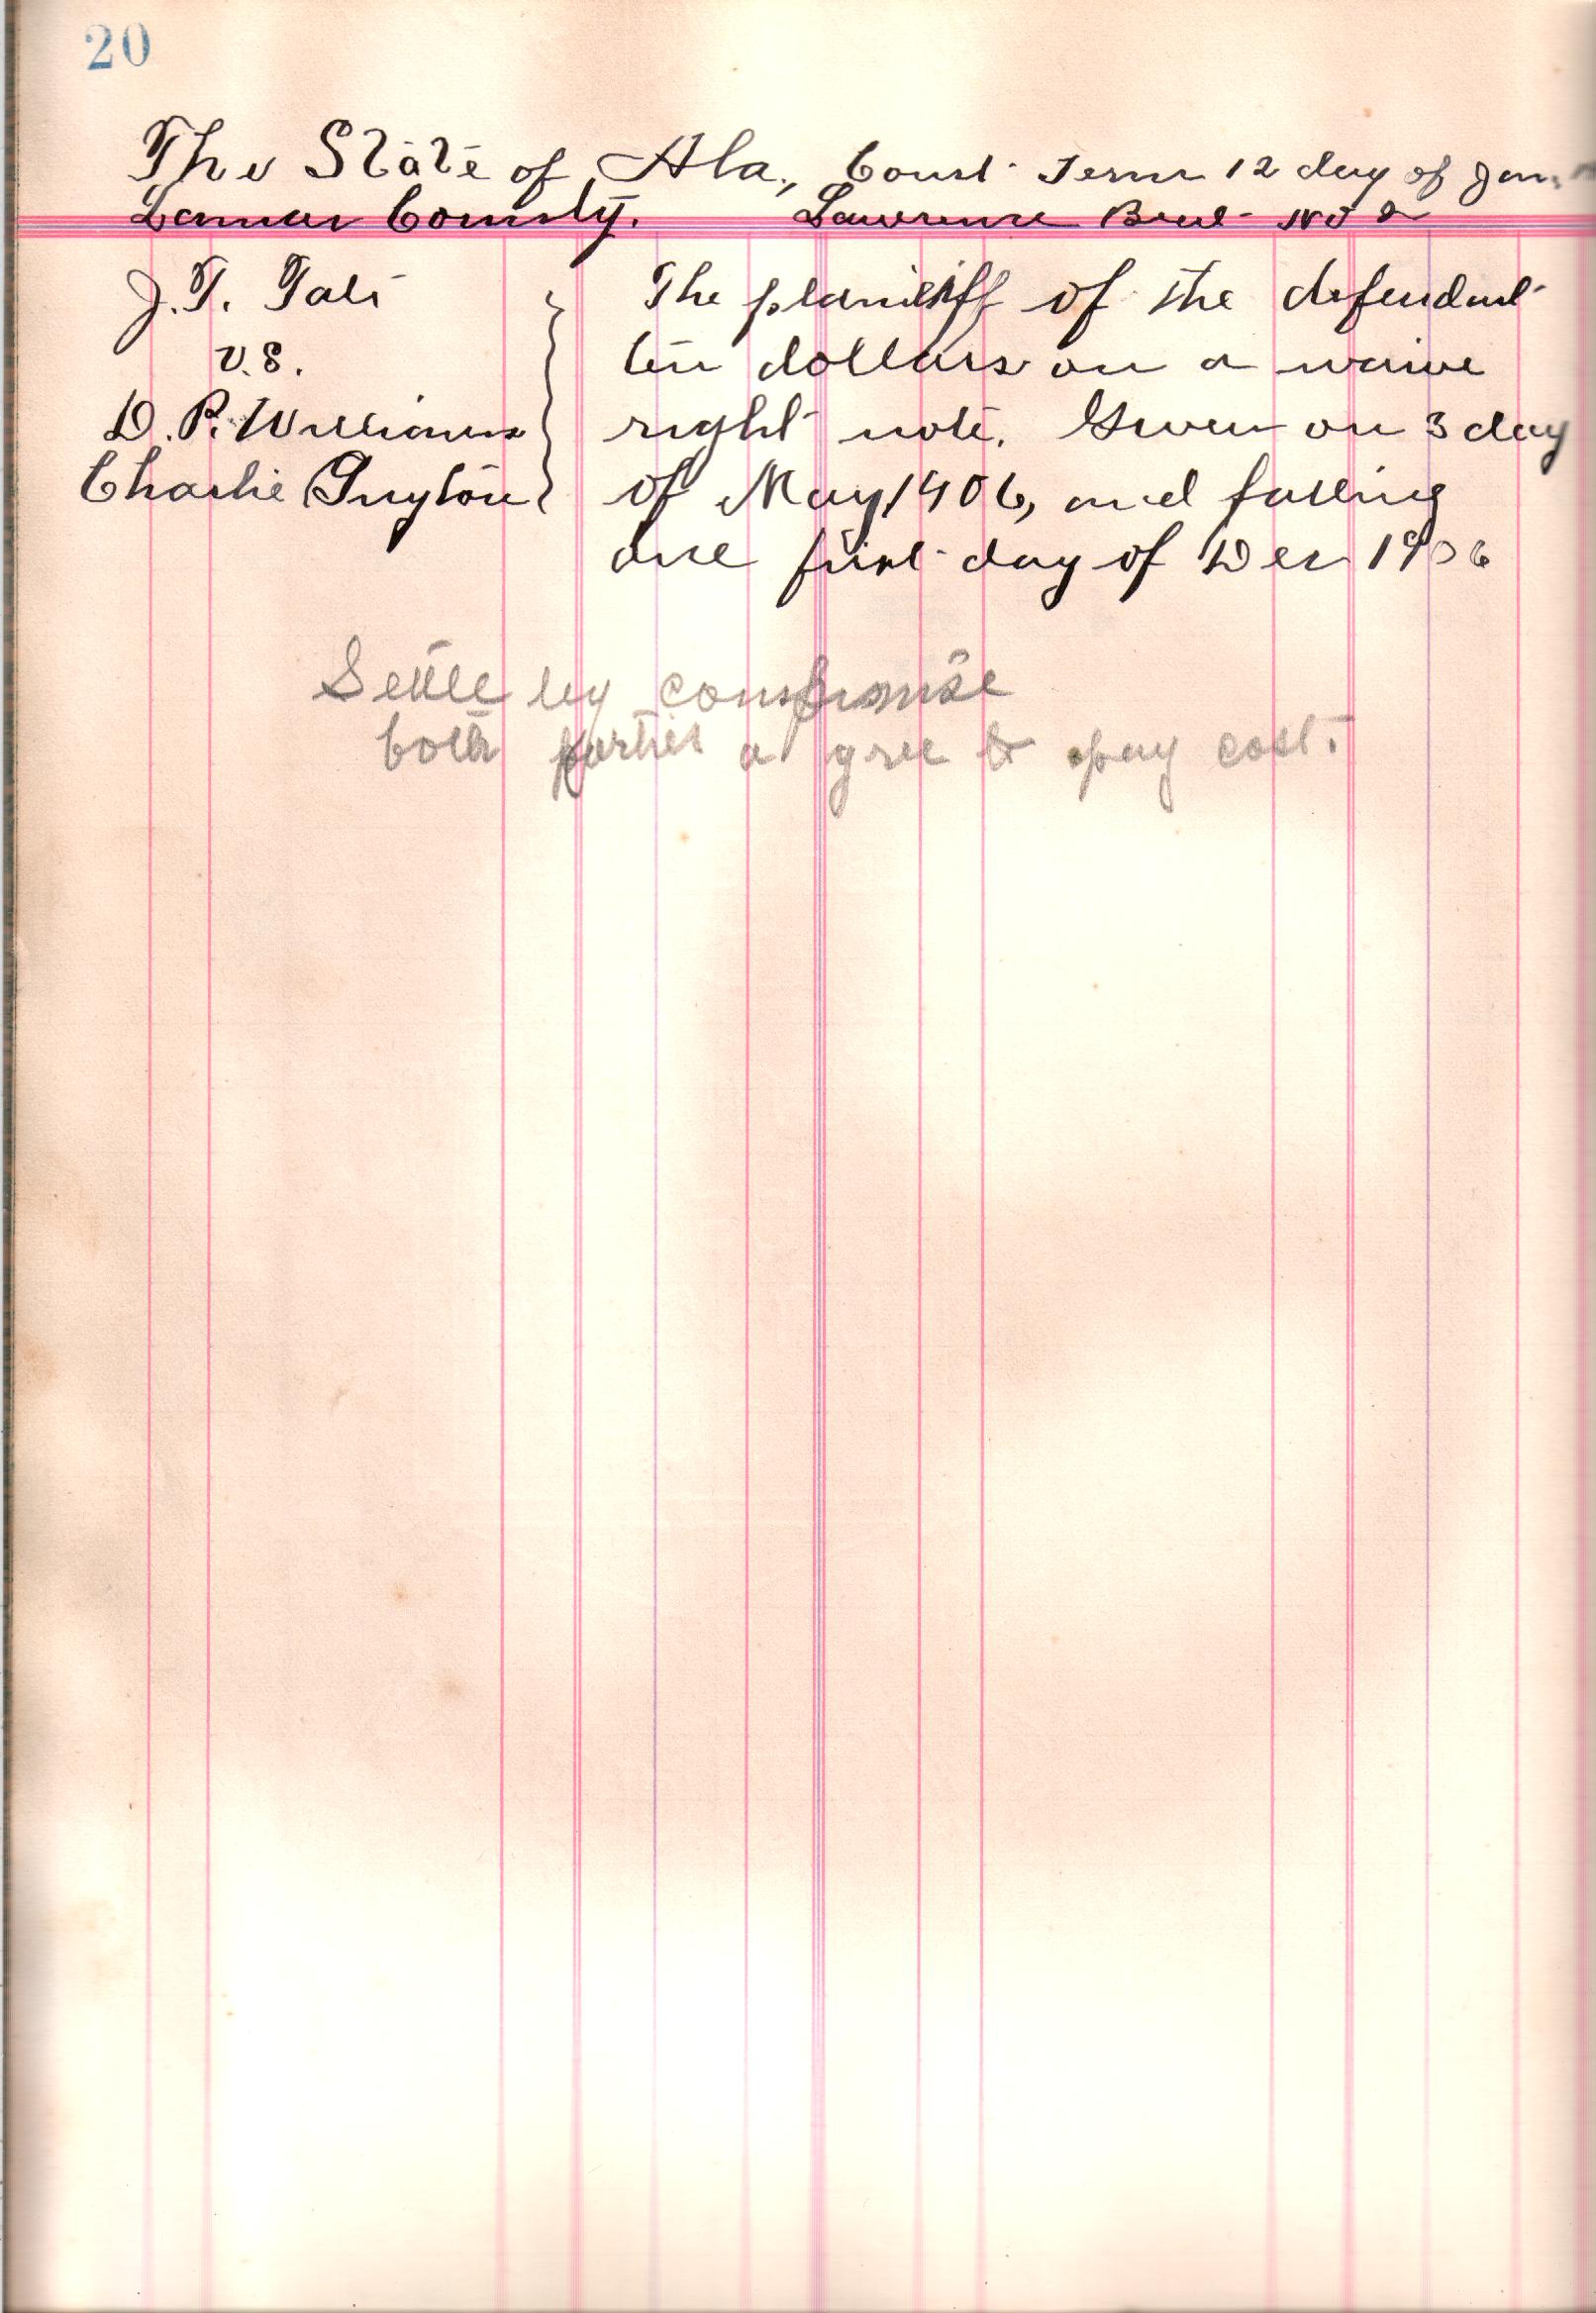 20
The State of Ala., Court Term 12 day of Jan.
Lamar County. Lawrence Beat No 2
J. T. Tate The plaintiff of the defendant
v.s. ten dollars on a waive
D. P. Williams right note. Given on 3 day
Charlie Guyton of May 1906, and falling
due first day of Dec 1906
Settle by compromise
both parties a gree to pay cost.